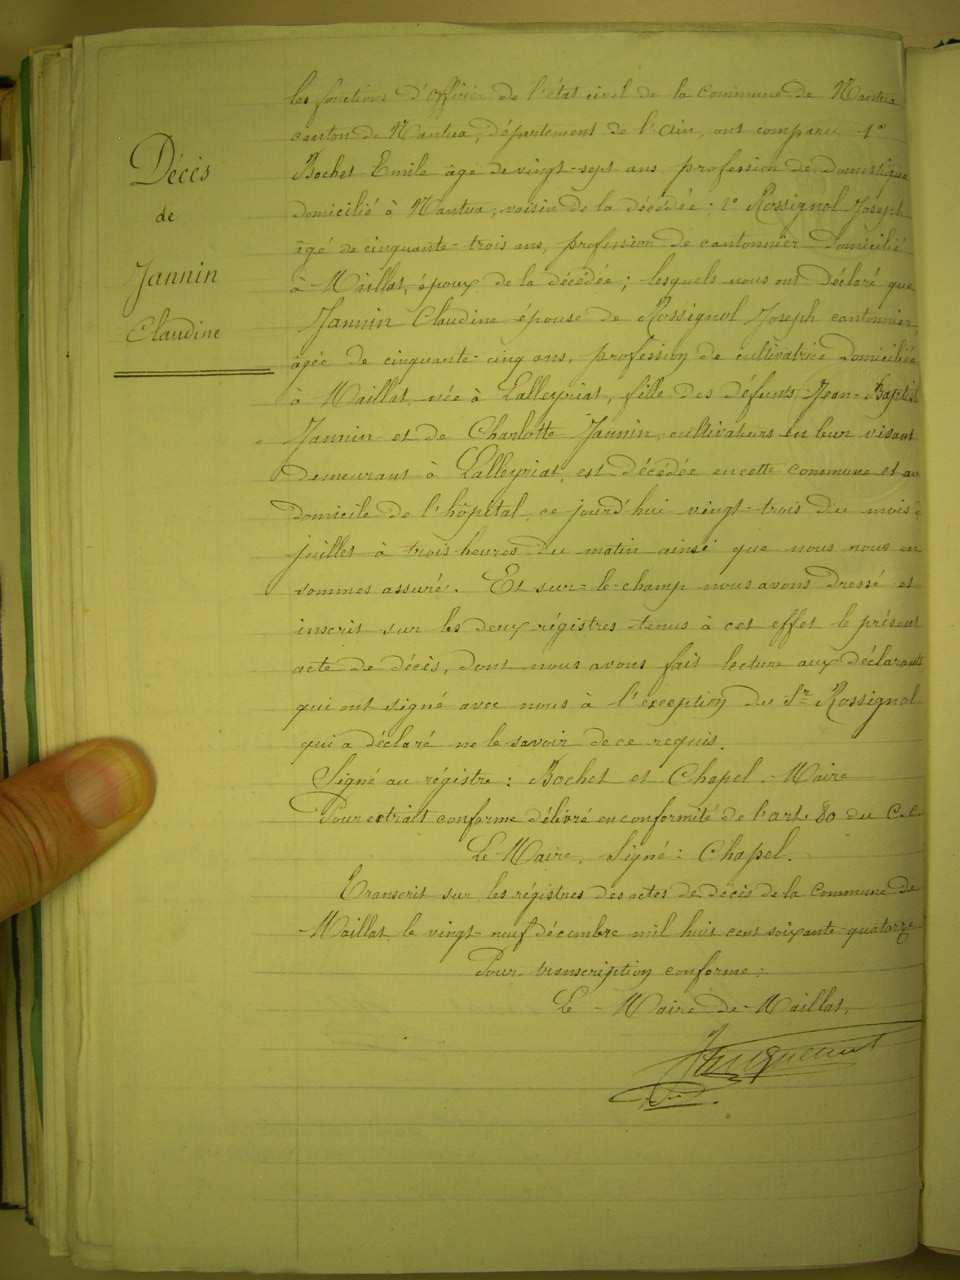 Décès
de
Jannin
Claudine
les fonctions d'officier de l'état civil de la commune de Mantua
canton de Mantua, département de l'Ain, ont comparu 1º
Bochet Emile âgé de vingt-sept ans profession de domestique
domicilié à Mantua, voisin de la décédée ; 2º Rossignol Joseph
âgé de cinquante-trois ans, profession de cantonnier domicilié
à Maillat, époux de la décédée ; lesquels nous ont déclaré que
Jannin Claudine épouse de Rossignol Joseph cantonnier
âgée de cinquante-cinq ans, profession de cultivatrice domiciliée
à Maillat née à Lalleyriat, fille des défunts Jean-Baptist
Jannin et de Charlotte Jannin, cultivateurs en leur vivant
demeurant à Lalleyriat, est décédée en cette commune et au
domicile de l'hôpital, ce jourd'hui vingt-trois du mois
juillet à trois heures du matin ainsi que nous nous en
sommes assuré. Et sur-le-champ nous avons dressé et
inscrit sur les deux régistres tenus à cet effet le présent
acte de décès, dont nous avons fait lecture aux déclarants
qui ont signé avec nous à l'exception du Sr Rossignol
qui a déclaré ne le savoir de ce requis.
Signé au régistre : Bochet et Chapel. Maire
Pour extrait conforme délivré en conformité de l'art. 80 du C.C.
Le Maire, Signé : Chapel.
Transcrit sur les régistres des actes de décès de la commune de
Maillat le vingt-neuf décembre mil huit cent soixante-quatorze
Pour transcription conforme :
Le Maire de Maillat,